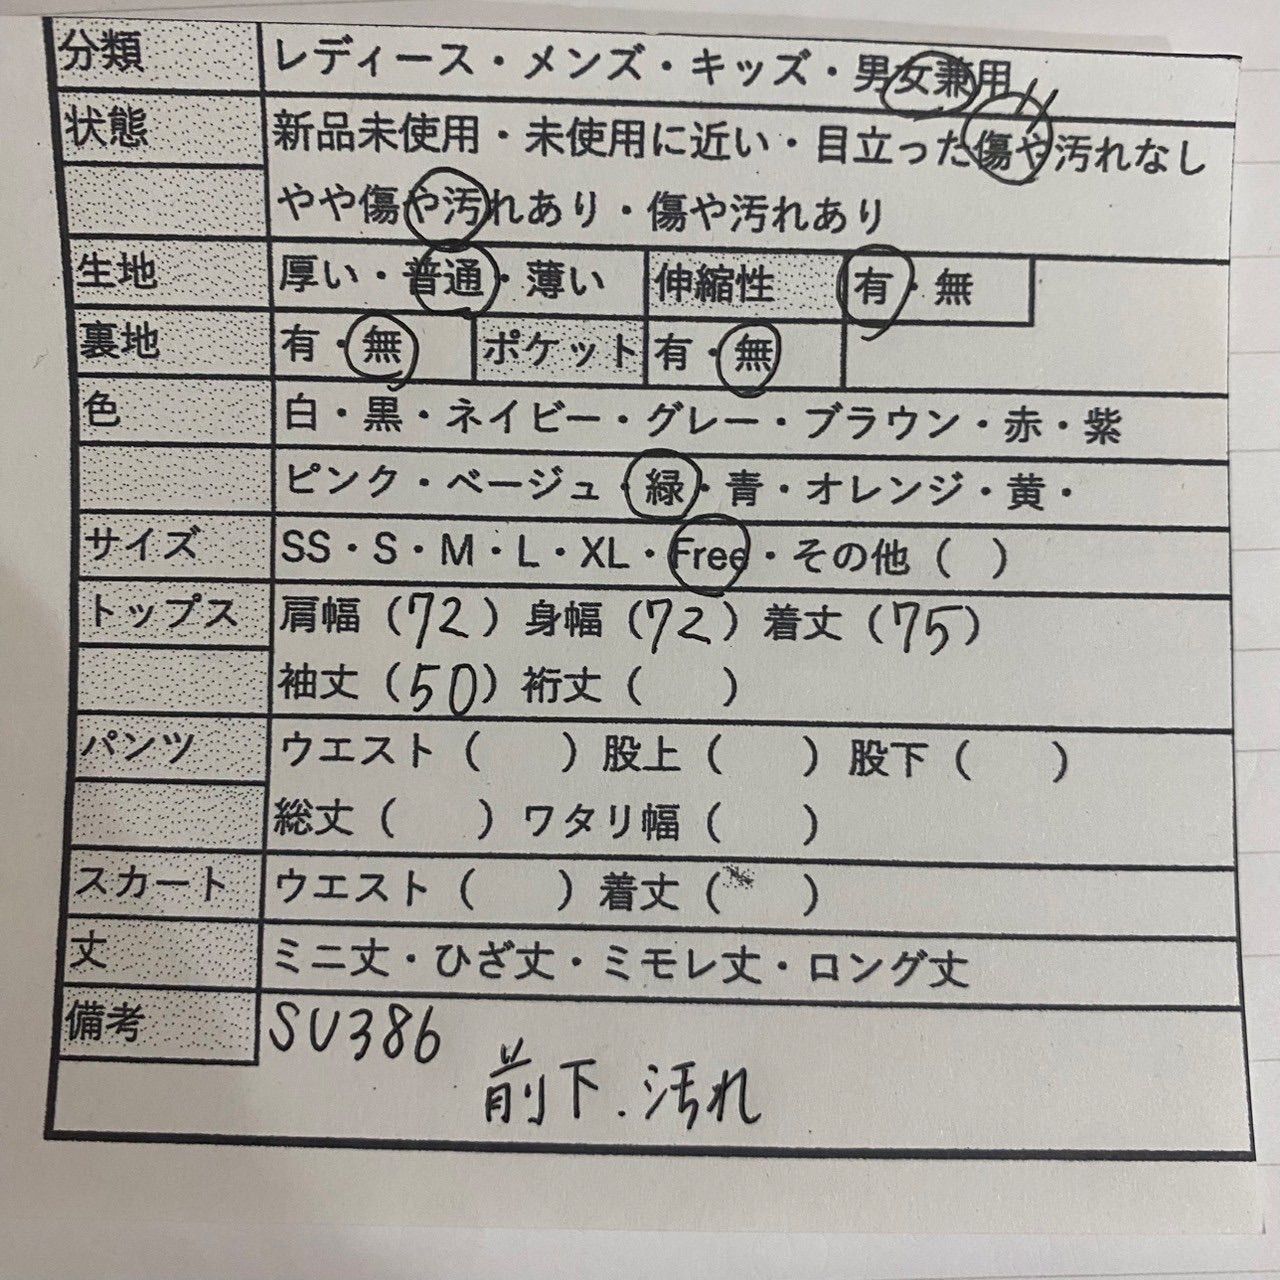 分類 レディース・メンズ・キッズ・男女兼用
状態 新品未使用・未使用に近い・目立った傷や汚れなし
やや傷や汚れあり・傷や汚れあり
生地 厚い・普通・薄い 伸縮性 有・無
裏地 有・無 ポケット 有・無
色 白・黒・ネイビー・グレー・ブラウン・赤・紫
ピンク・ベージュ・緑・青・オレンジ・黄・
サイズ SS・S・M・L・XL・Free・その他（ ）
トップス 肩幅（72）身幅（72）着丈（75）
袖丈（50）裄丈（ ）
パンツ ウエスト（ ）股上（ ）股下（ ）
総丈（ ）ワタリ幅（ ）
スカート ウエスト（ ）着丈（ ）
丈 ミニ丈・ひざ丈・ミモレ丈・ロング丈
備考 SU386
前下.汚れ